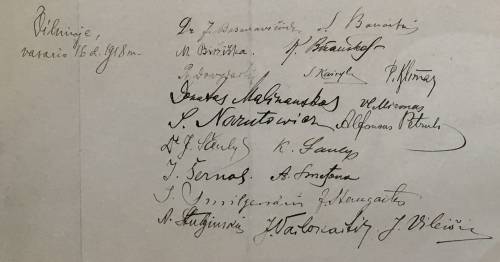 Vilniuje,
vasario 16 d. 1918 m.
Dr J. Basanavičius S. Banaitis
M. Biržiška. K. Bizauskas
Pr. Dovydaitis S. Kairys P. Klimas
Donatas Malinauskas Vl. Mironas
S. Narutowicz Alfonsas Petrulis
Dr J. Šaulys K. Šaulys
J. Šernas A. Smetona
J. Smilgevičius J. Staugaitis
A. Stulginskis J. Vailokaitis J. Vileišis